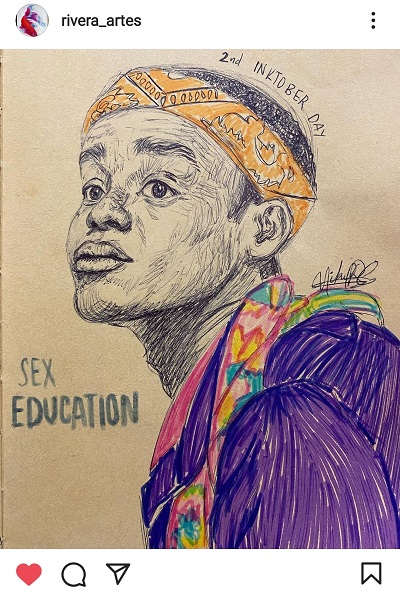 rivera_artes
2nd INKTOBER DAY
SEX
EDUCATION